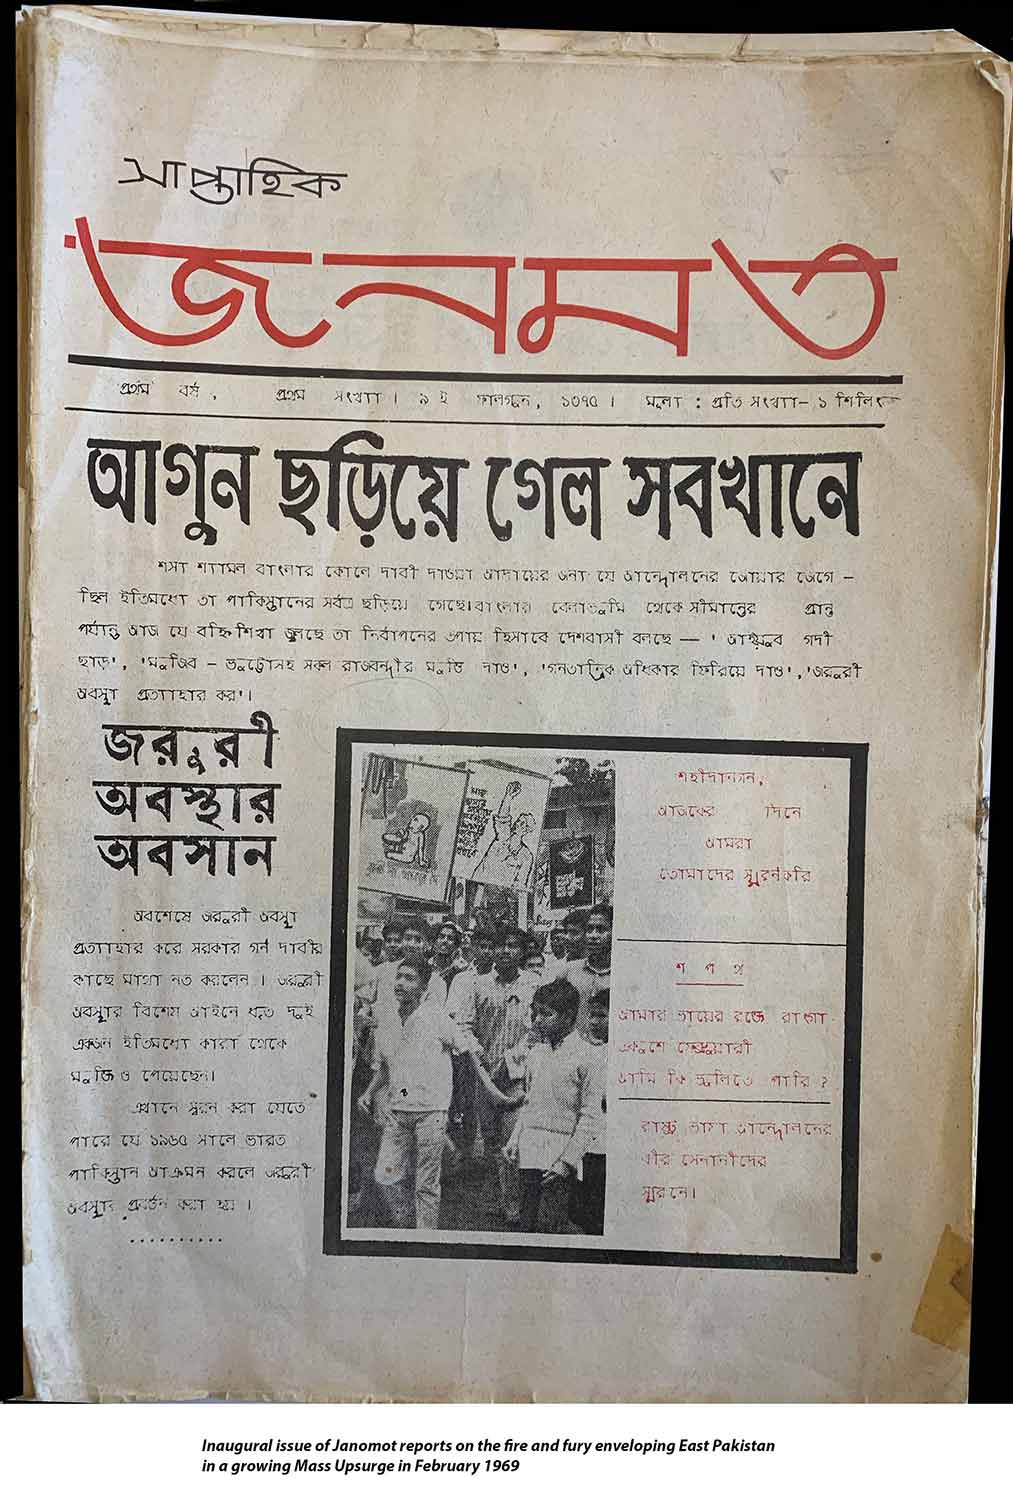 সাপ্তাহিক
জনমত
প্রথম বর্ষ, প্রথম সংখ্যা। ৯ ই ফাল্গুন, ১৩৭৫। মূল্য : প্রতি সংখ্যা- ১ শিলিং
আগুন ছড়িয়ে গেল সবখানে
শস্য শ্যামল বাংলার কোলে দাবী দাওয়া আদায়ের জন্য যে আন্দোলনের জোয়ার জেগে -
ছিল ইতিমধ্যে তা পাকিস্তানের সর্বত্র ছড়িয়ে গেছে। বাংলার বেলাভূমি থেকে সীমান্তের প্রান্ত
পর্য্যন্ত আজ যে বহ্নি শিখা জ্বলছে তা নির্বাপনের উপায় হিসাবে দেশবাসী বলছে — ' আইয়ুব গদী
ছাড়', 'মুজিব - ভুট্টোসহ সকল রাজবন্দীর মুক্তি দাও', 'গনতান্ত্রিক অধিকার ফিরিয়ে দাও', 'জরুরী
অবস্থা প্রত্যাহার কর'।
জরুরী
অবস্থার
অবসান
অবশেষে জরুরী অবস্থা
প্রত্যাহার করে সরকার গণ দাবীর
কাছে মাথা নত করলেন । জরুরী
অবস্থার বিশেষ আইনে ধৃত দুই
একজন ইতিমধ্যে কারা থেকে
মুক্তি ও পেয়েছেন।
এখানে স্মরন করা যেতে
পারে যে ১৯৬৫ সালে ভারত
পাকিস্তান আক্রমন করলে জরুরী
অবস্থার প্রবর্তন করা হয় ।
..........
শহীদানগন,
আজকের দিনে
আমরা
তোমাদের স্মরণ করি
শ প থ
আমার ভায়ের রক্তে রাংগা
একুশে ফেব্রুয়ারী
আমি কি ভুলিতে পারি ?
রাষ্ট্র ভাষা আন্দোলনের
বীর সেনানীদের
স্মরনে।
Inaugural issue of Janomot reports on the fire and fury enveloping East Pakistan
in a growing Mass Upsurge in February 1969